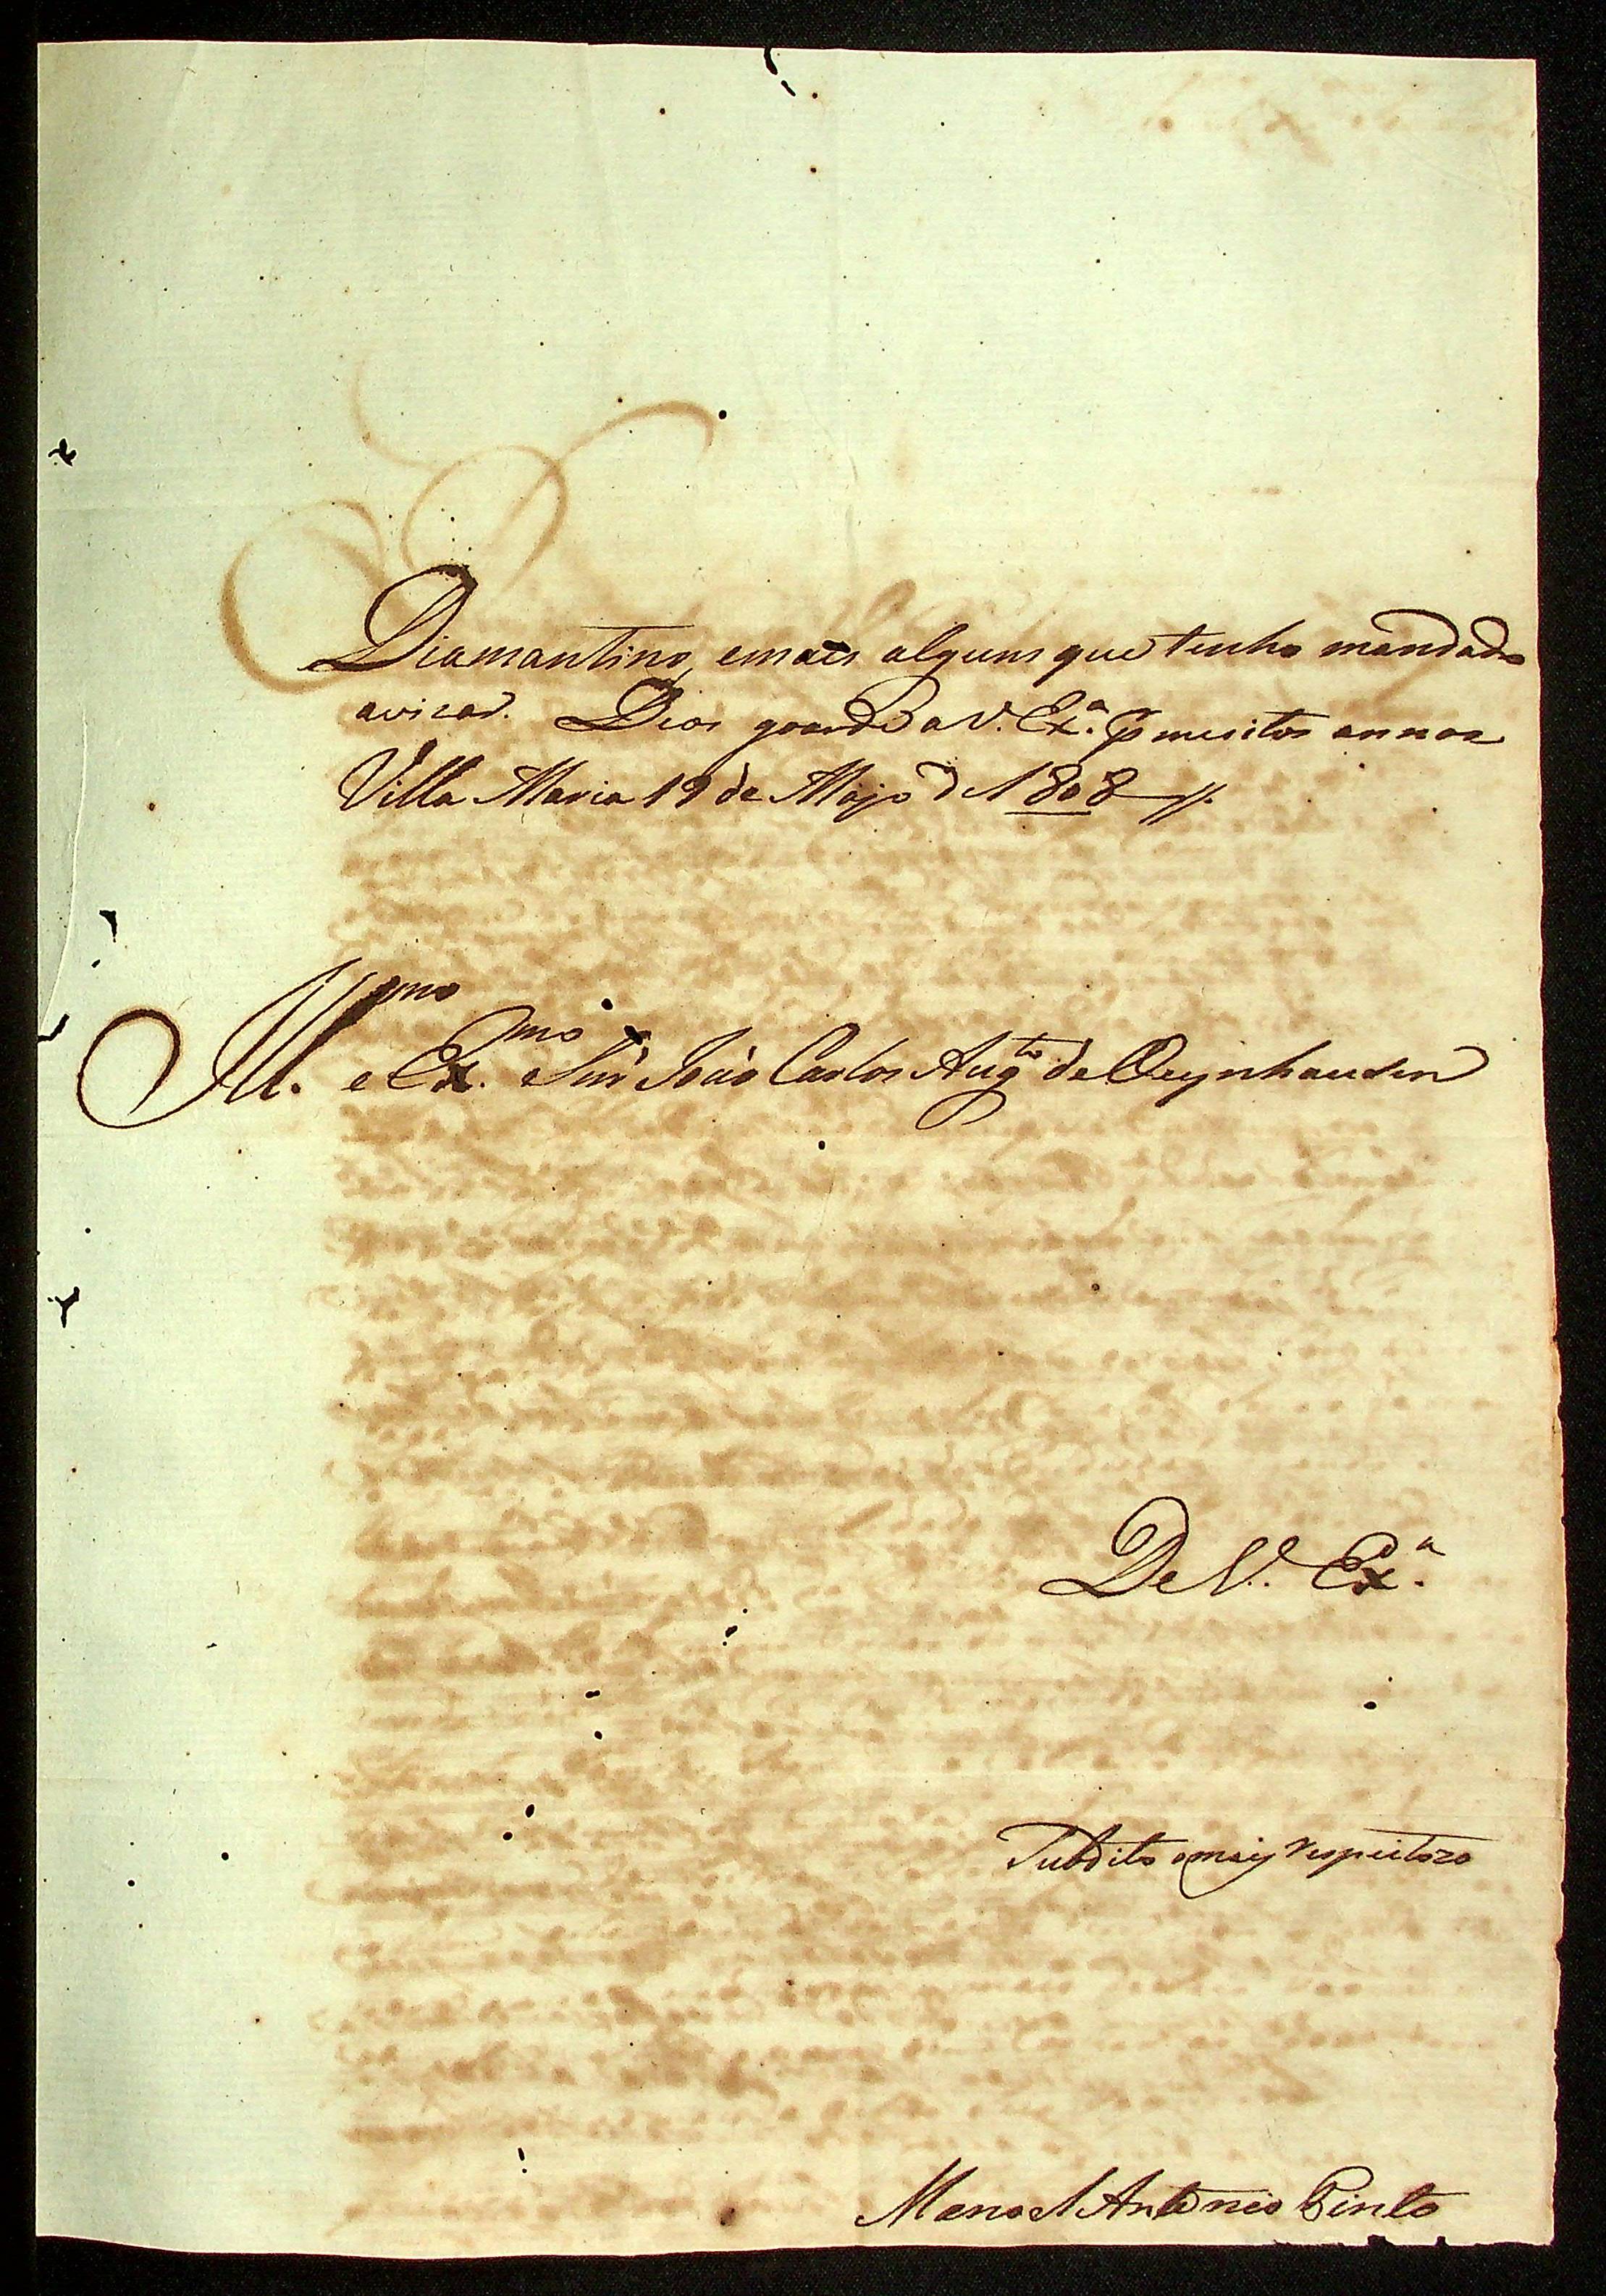 Diamantino, emais alguns que tenho mandado
avizar. Deos goarde a V. Ex.ª p muitos annos
Villa Maria 19 de Mayo d 1808 //.
Ill.mo e Ex.mo Snr João Carlos Aug.to de Oeynhausen
De V. Ex.ª
Subdito omais respeitozo
Manoel Antonio Pinto